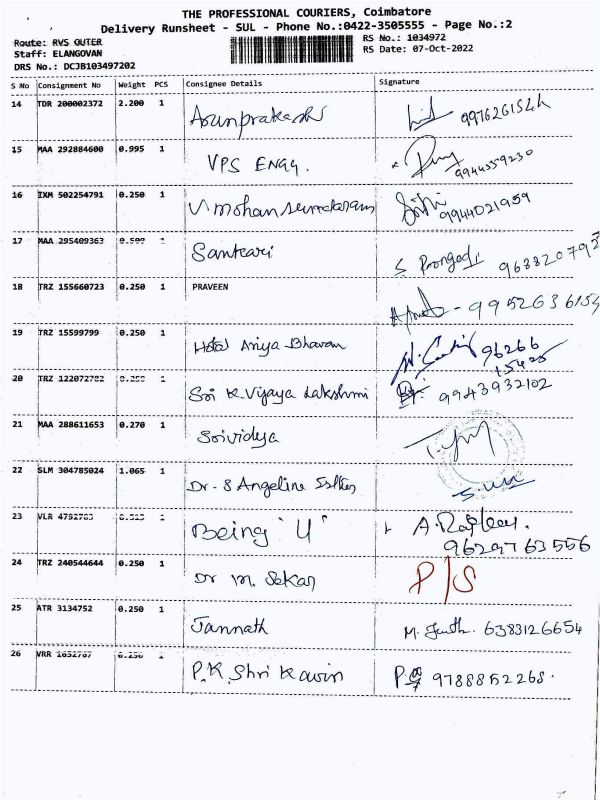 THE PROFESSIONAL COURIERS, Coimbatore
Delivery Runsheet - SUL - Phone No.:0422-3505555 - Page No.:2
Route: RVS OUTER
RS No.: 1034972
Staff: ELANGOVAN
RS Date: 07-Oct-2022
DRS No.: DCJB103497202
S No Consignment No Weight PCS Consignee Details Signature
14 TDR 200002372 2.200 1 Arunprakash
15 MAA 292884600 0.995 1 VPS ENGG. 9944559230
16 IXM 502254791 0.250 1 V mohan sundaram 9944021959
17 MAA 295409363 0.500 1 Sankari S. 968820792
18 TRZ 155660723 0.250 1 PRAVEEN 9952636154
19 TRZ 15599799 0.250 1 Hotel Ariya Bhavan 96266
15425
20 TRZ 122072782 0.250 1 Sri K Vijaya Lakshmi 9943932102
21 MAA 288611653 0.270 1 Srividya
22 SLM 304785024 1.065 1 Dr. S Angeline
23 VLR 1 Being "U" A.
9629763556
24 TRZ 240544644 0.250 1 Dr M. Sekar P/S
25 ATR 3134752 0.250 1 Jannath M. 6383126654
26 VRR 0.250 1 P.K. Shri Kawin 9788852268.